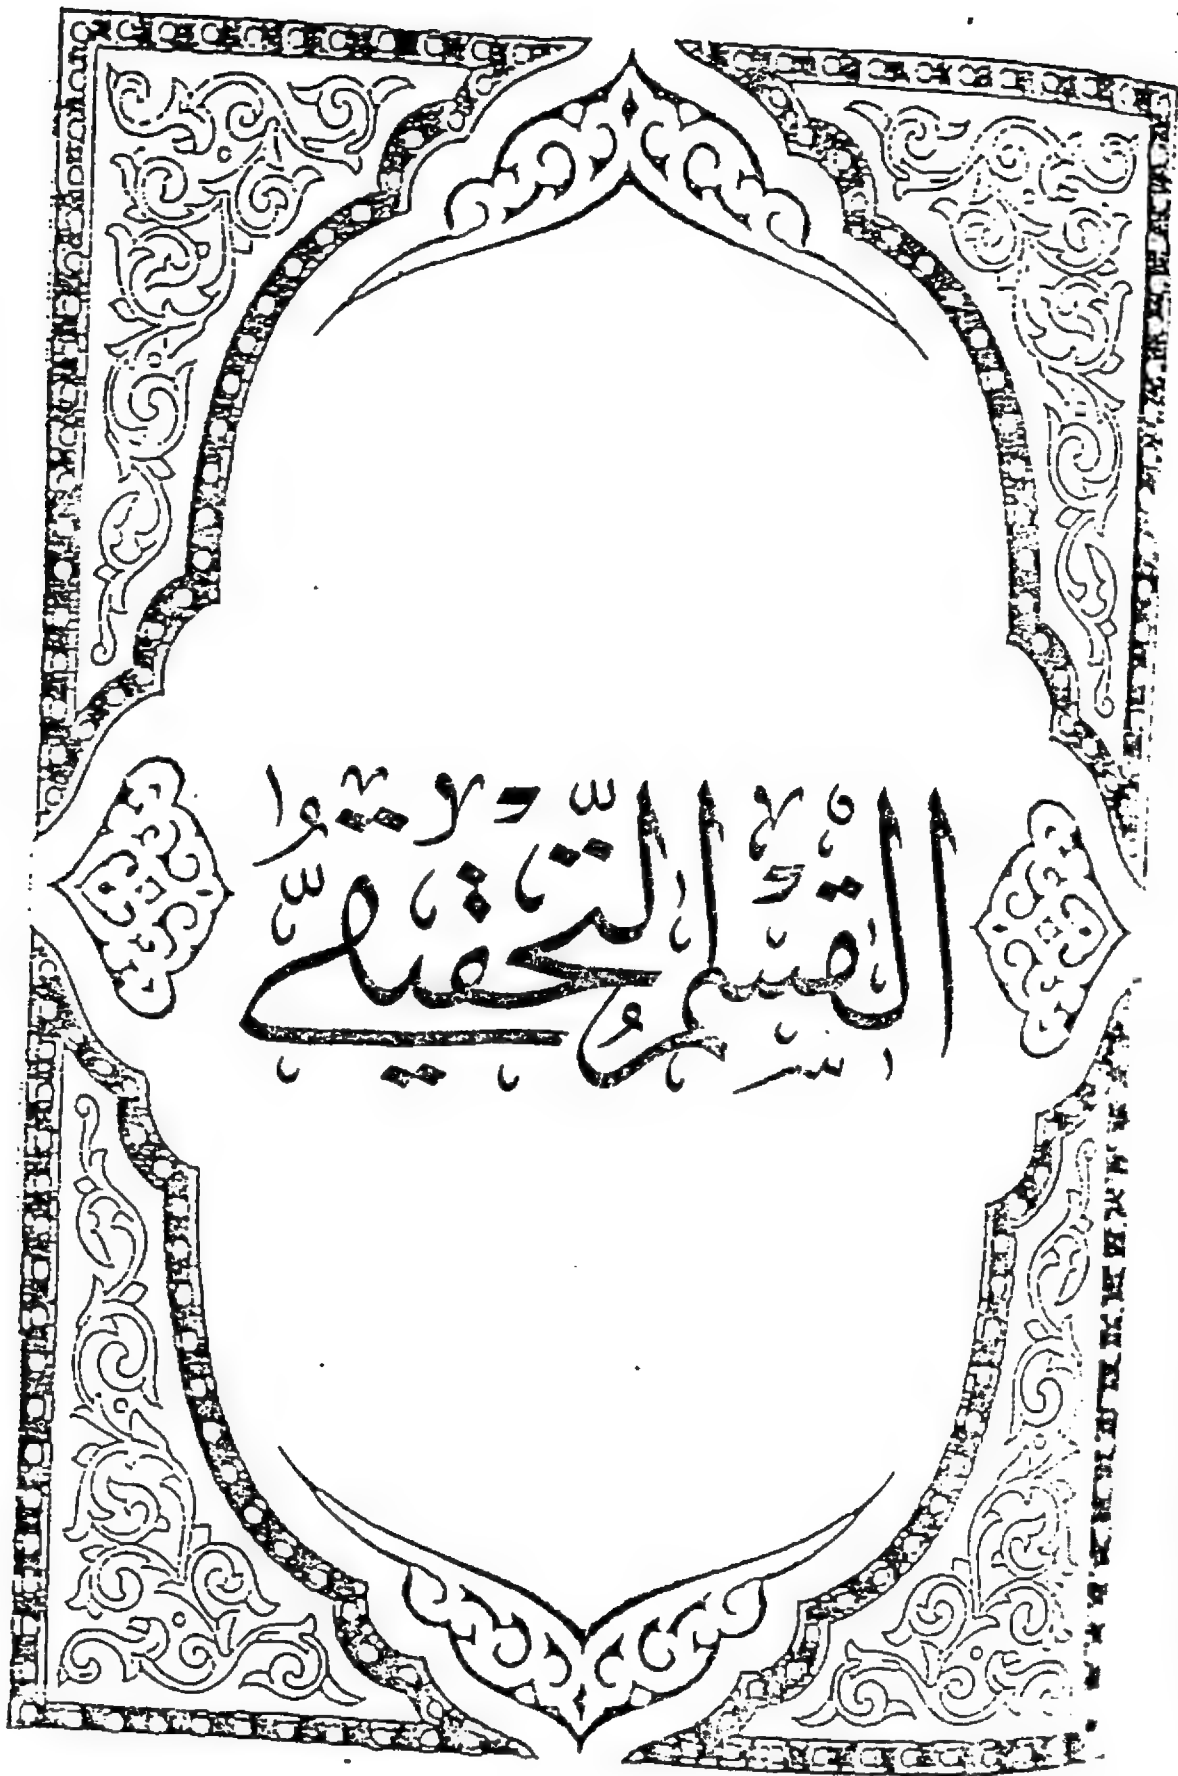 القِسْمُ التَّحْقِيقِيّ